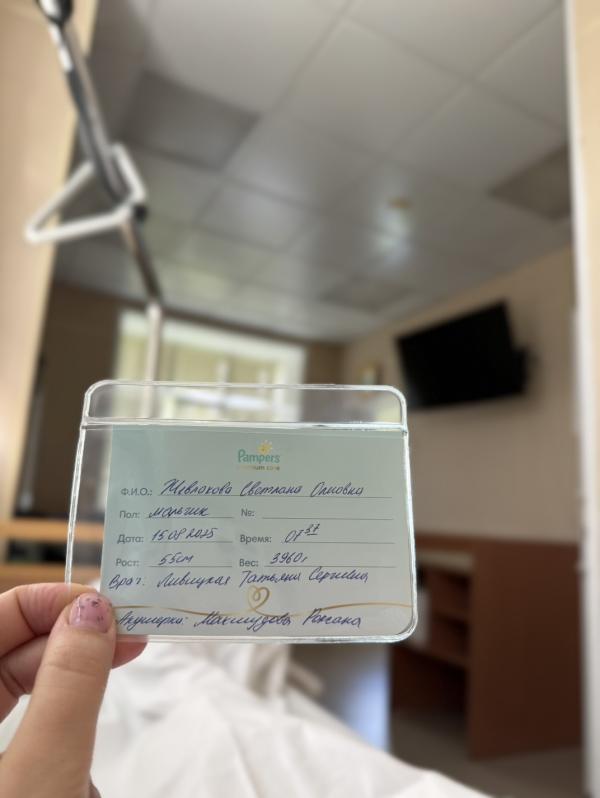 Pampers
premium care
Ф.И.О.: Жевлакова Светлана Олеговна
Пол: мальчик №:
Дата: 15 08 2025 Время: 07 37
Рост: 55см Вес: 3960г
Врач: Ливицкая Татьяна Сергеевна
Акушерка: Махмудова Роксана